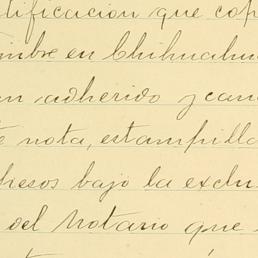 tificacion que cop
imbre en Chihuahu
en adherido y can
e nota, estampilla
pesos bajo la exclu
del Notario que